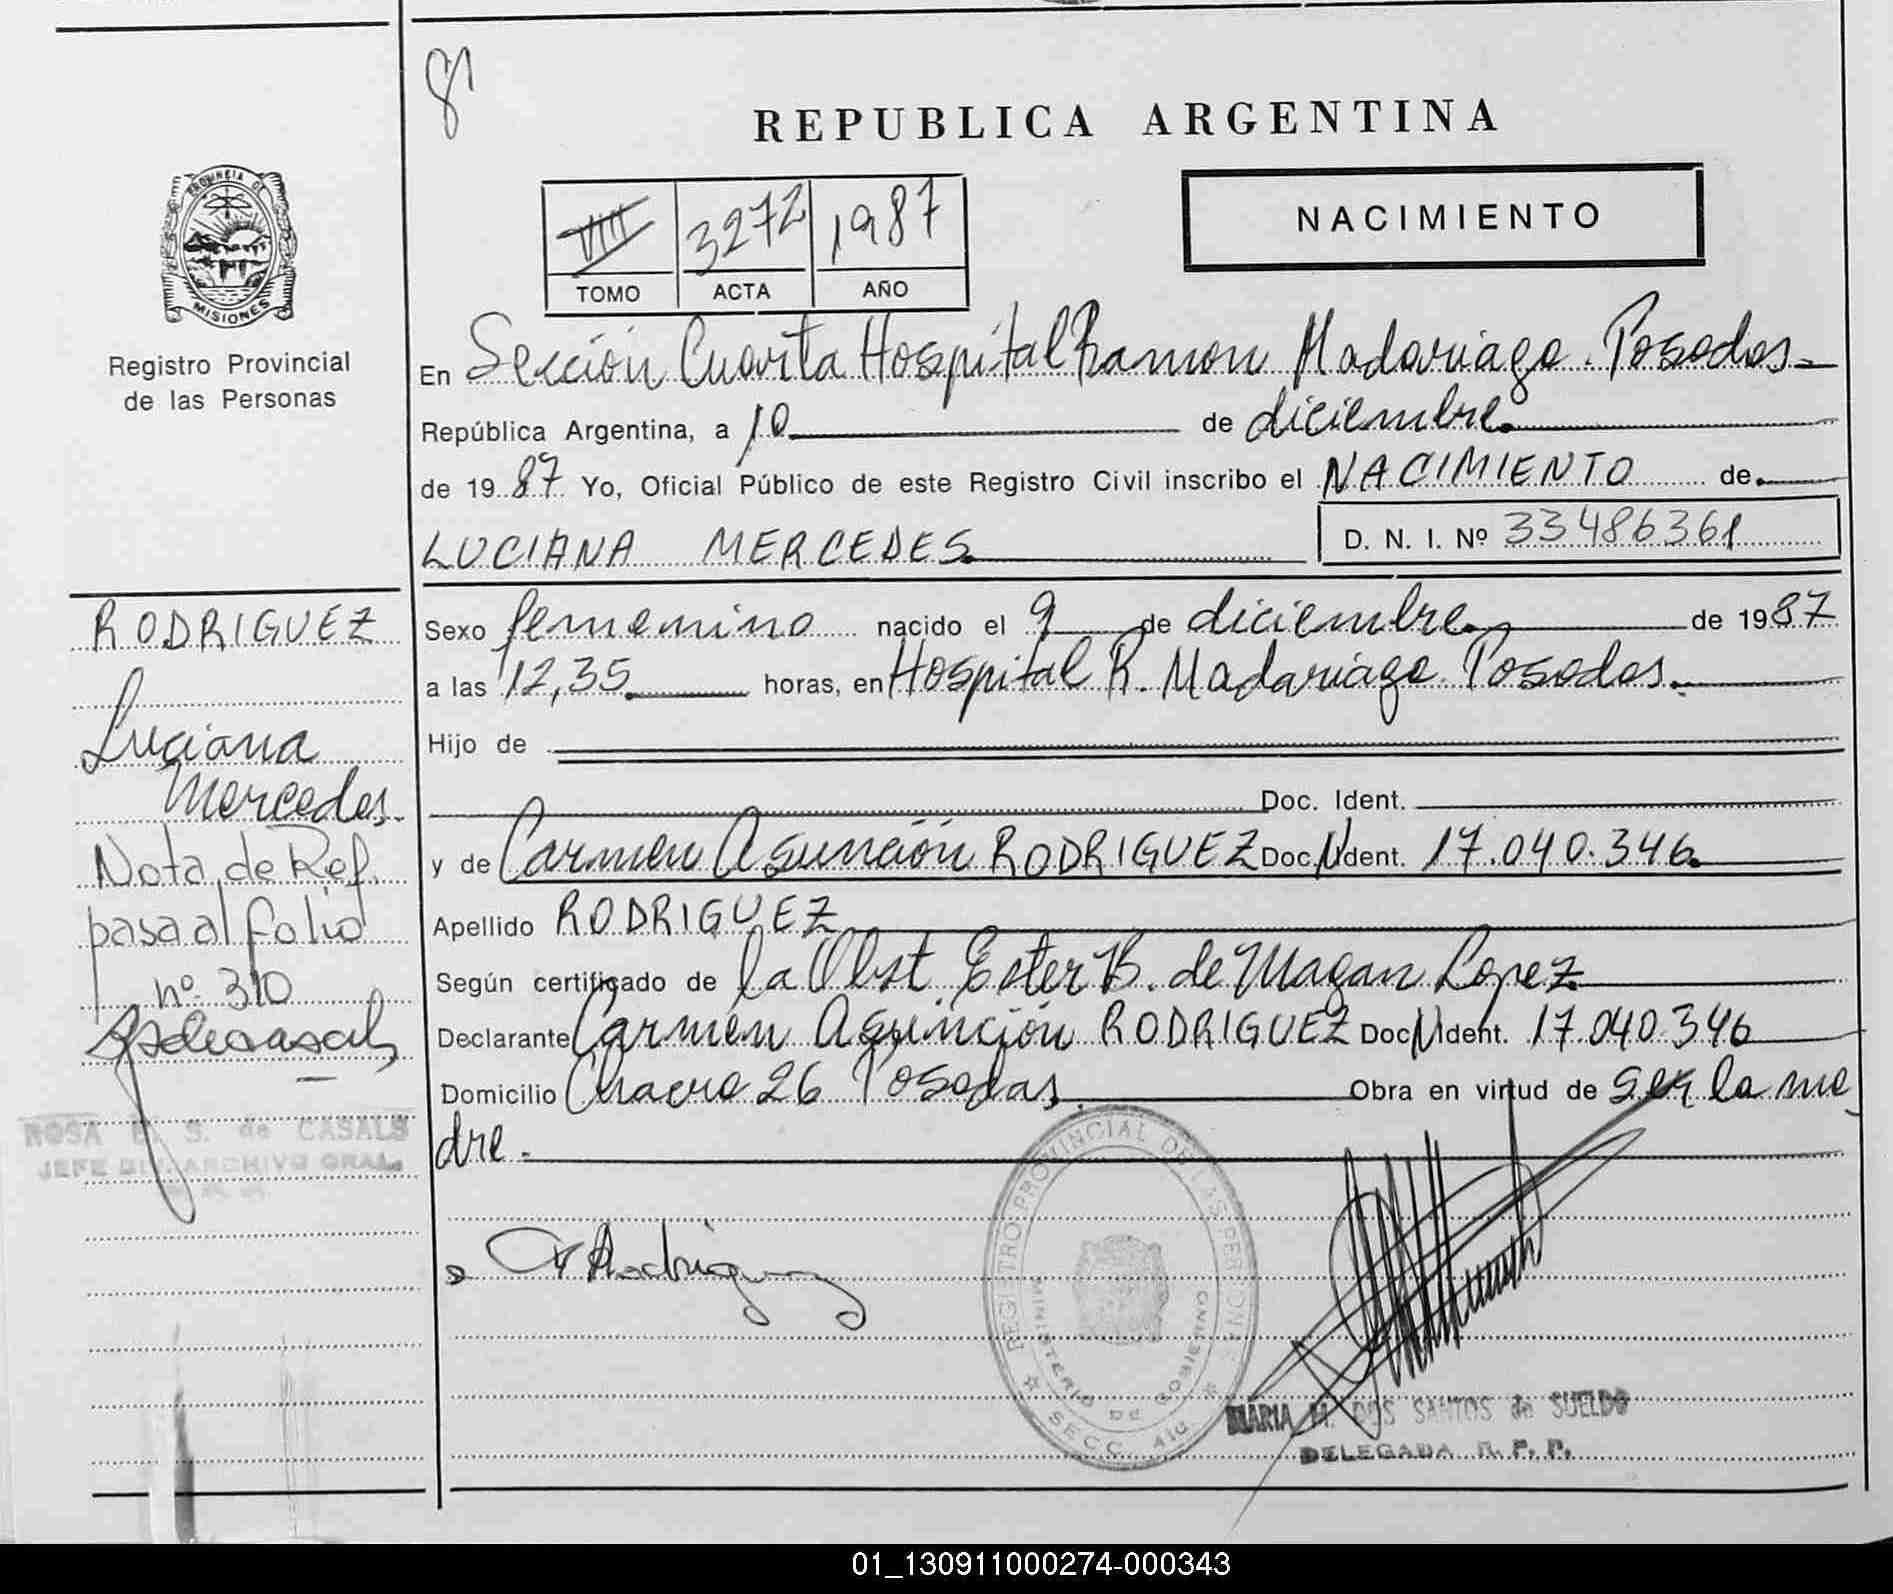 8
REPUBLICA ARGENTINA
PROVINCIA DE
MISIONES
Registro Provincial
de las Personas
VIII 3272 1987
TOMO ACTA AÑO
NACIMIENTO
En Sección Cuarta Hospital Ramon Madariaga. Posadas
República Argentina, a 10 de diciembre
de 1987 Yo, Oficial Público de este Registro Civil inscribo el NACIMIENTO de
LUCIANA MERCEDES
D. N. I. Nº 33486361
RODRIGUEZ
Luciana
Mercedes
Nota de Ref.
pasa al folio
nº 310
ROSA E. S. de CASALS
JEFE DEL ARCHIVO GRAL.
Sexo femenino nacido el 9 de diciembre de 1987
a las 12,35 horas, en Hospital R. Madariaga. Posadas.
Hijo de
Doc. Ident.
y de Carmen Asunción RODRIGUEZ Doc. Ident. 17.040.346
Apellido RODRIGUEZ
Según certificado de la Obst. Ester B. de Magan Lopez
Declarante Carmen Asunción RODRIGUEZ Doc. Ident. 17.040.346
Domicilio Chacra 26 Posadas. Obra en virtud de ser la ma
dre.
Rodriguez
REGISTRO PROVINCIAL DE LAS PERSONAS
MINISTERIO DE GOBIERNO
SECC. 4ta
MARIA M. DOS SANTOS de SUELDO
DELEGADA R. P. P.
01_130911000274-000343